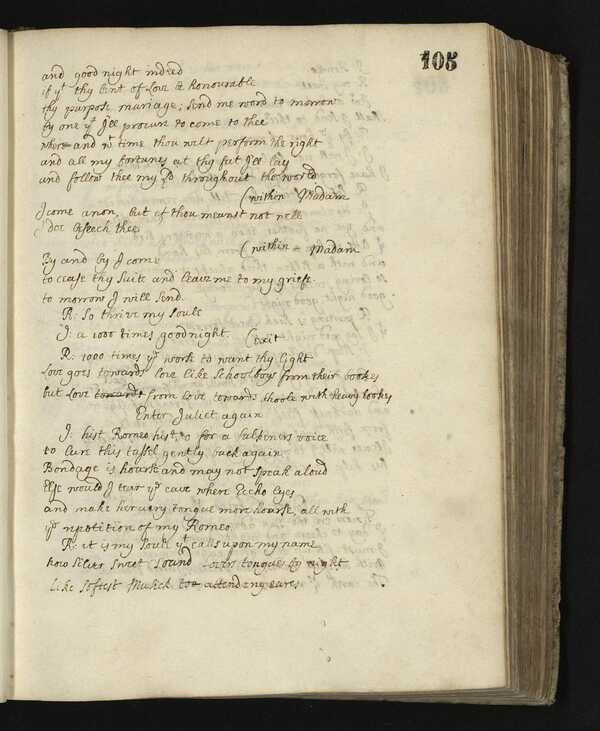 105
and good night indeed
if yt thy bent of Love be honourable
thy purpose mariage; send me word to morrow
by one yt I'll procure to come to thee
where and wt time thou wilt perform the right
and all my fortunes at thy fut I'll lay
and follow thee my Ld throughout the world
(within Madam
I come anon, but if thou meanst not well
I doe beseech thee
(within - Madam
By and by I come
to cease thy suite and leave me to my griefe
to morrow I will send.
R: So thrive my soule
J: a 1000 times goodnight. (exit
R: 1000 times ye worse to want thy light
Love goes towards love like schoolboys from their bookes
but Love towards from love towards schoole with heavy lookes
Enter Juliet again
J: hist Romeo hist, o for a falkeners voice
to lure this tassel gently back again
Bondage is hoarse and may not speak aloud
Else would I tear ye cave where Eccho lyes
and make her very tongue more hoarse, all with
ye repetition of my Romeo
R: it is my soule yt calls upon my name
how silver sweet sound lovers tongues by night
like softest Musick to attending eares